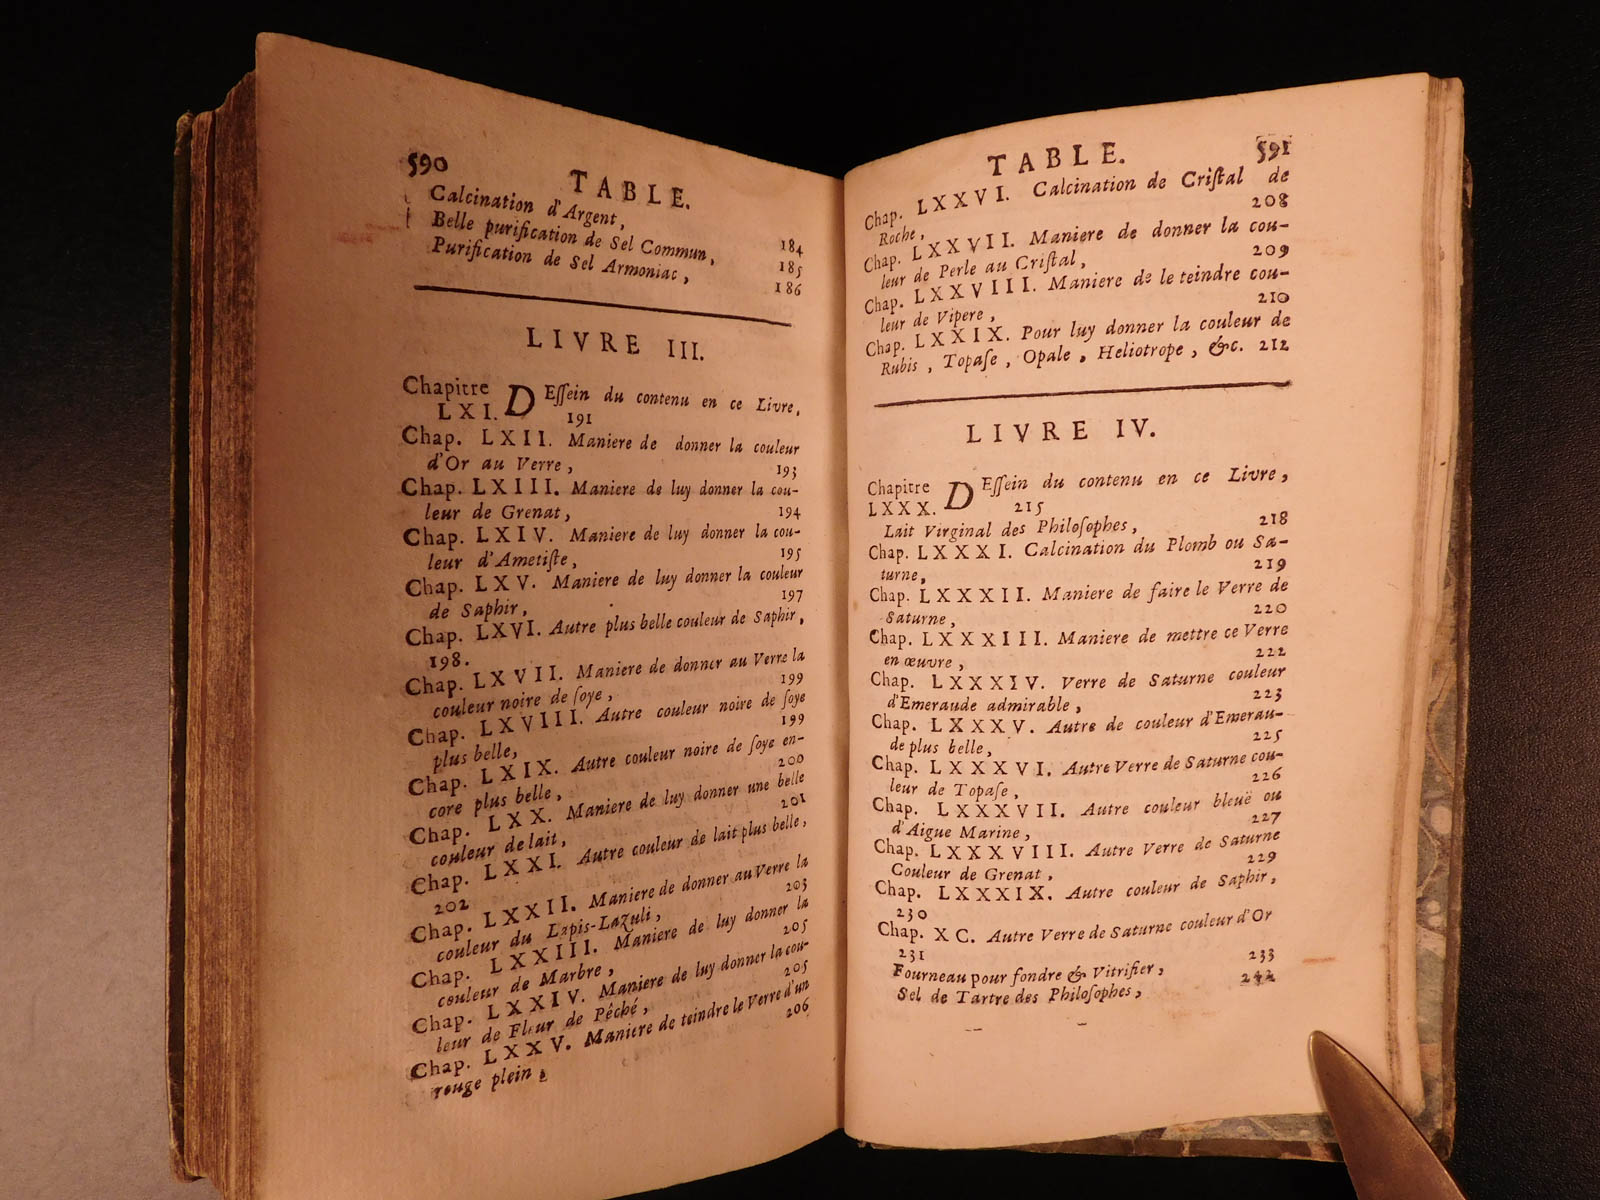 590
TABLE.
Calcination d'Argent, 184
Belle purification de Sel Commun, 185
Purification de Sel Armoniac, 186
LIVRE III.
Chapitre LXI. DEſſein du contenu en ce Livre,
191
Chap. LXII. Maniere de donner la couleur
d'Or au Verre, 193
Chap. LXIII. Maniere de luy donner la cou-
leur de Grenat, 194
Chap. LXIV. Maniere de luy donner la cou-
leur d'Ametiſte, 195
Chap. LXV. Maniere de luy donner la couleur
de Saphir, 197
Chap. LXVI. Autre plus belle couleur de Saphir,
198.
Chap. LXVII. Maniere de donner au Verre la
couleur noire de ſoye, 199
Chap. LXVIII. Autre couleur noire de ſoye
plus belle, 199
Chap. LXIX. Autre couleur noire de ſoye en-
core plus belle, 200
Chap. LXX. Maniere de luy donner une belle
couleur de lait, 201
Chap. LXXI. Autre couleur de lait plus belle,
202
Chap. LXXII. Maniere de donner au Verre la
couleur du Lapis-Lazuli, 203
Chap. LXXIII. Maniere de luy donner la
couleur de Marbre, 205
Chap. LXXIV. Maniere de luy donner la cou-
leur de Fleur de Pêché, 205
Chap. LXXV. Maniere de teindre le Verre d'un
rouge plein, 206
TABLE. 591
Chap. LXXVI. Calcination de Criſtal de
Roche, 208
Chap. LXXVII. Maniere de donner la cou-
leur de Perle au Criſtal, 209
Chap. LXXVIII. Maniere de le teindre cou-
leur de Vipere, 210
Chap. LXXIX. Pour luy donner la couleur de
Rubis, Topaſe, Opale, Heliotrope, &c. 212
LIVRE IV.
Chapitre LXXX. DEſſein du contenu en ce Livre,
215
Lait Virginal des Philoſophes, 218
Chap. LXXXI. Calcination du Plomb ou Sa-
turne, 219
Chap. LXXXII. Maniere de faire le Verre de
Saturne, 220
Chap. LXXXIII. Maniere de mettre ce Verre
en œuvre, 222
Chap. LXXXIV. Verre de Saturne couleur
d'Emeraude admirable, 223
Chap. LXXXV. Autre de couleur d'Emerau-
de plus belle, 225
Chap. LXXXVI. Autre Verre de Saturne cou-
leur de Topaſe, 226
Chap. LXXXVII. Autre couleur bleuë ou
d'Aigue Marine, 227
Chap. LXXXVIII. Autre Verre de Saturne
Couleur de Grenat, 229
Chap. LXXXIX. Autre couleur de Saphir,
230
Chap. XC. Autre Verre de Saturne couleur d'Or
231
Fourneau pour fondre & Vitrifier, 233
Sel de Tartre des Philoſophes, 242